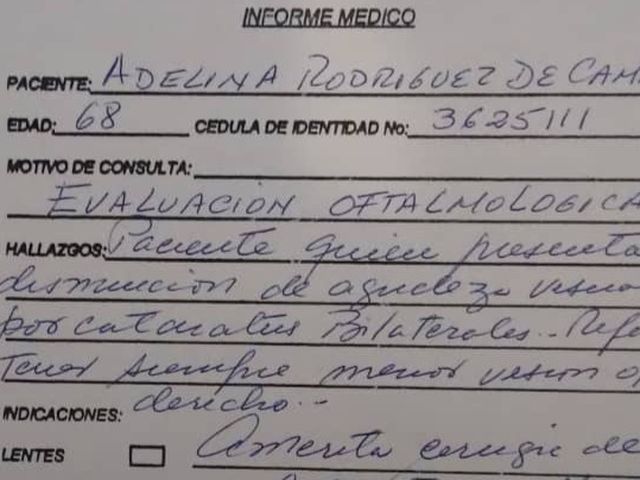 INFORME MEDICO
PACIENTE: ADELINA RODRIGUEZ DE CAM
EDAD: 68 CEDULA DE IDENTIDAD No: 3625111
MOTIVO DE CONSULTA:
EVALUACION OFTALMOLOGICA
HALLAZGOS: Paciente quien presenta
disminucion de agudeza visua
por cataratas Bilaterales.. Refe
Tener siempre menor vision o
derecho.-
INDICACIONES:
LENTES Amerita cirugia de